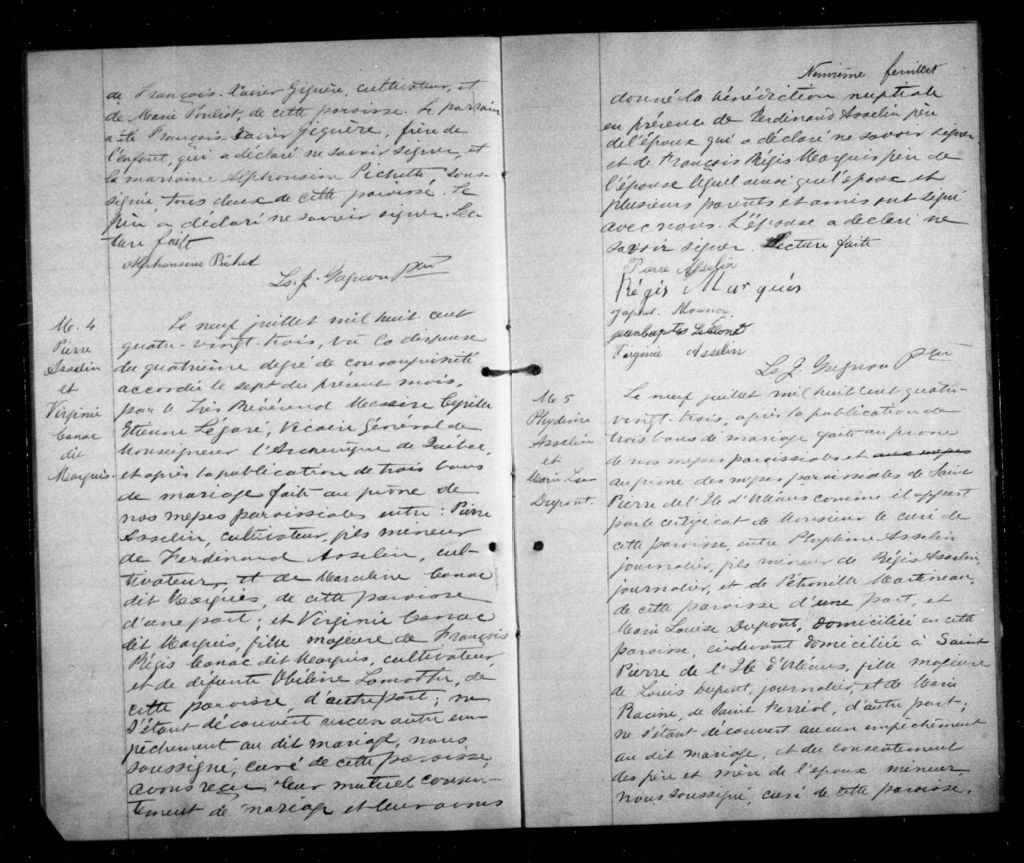 de François-Xavier Giguère, cultivateur, et
de Marie Pouliot, de cette paroisse. Le parrain
a été François Xavier Giguère, frère de
l'enfant, qui a déclaré ne savoir signer, et
la marraine Alphonsine Pichette sous-
signée tous deux de cette paroisse. Le
père a déclaré ne savoir signer. Lec-
ture faite
Alphonsine Pichet
Ls. J. Gagnon Ptre
M. 4
Pierre
Asselin
et
Virginie
Canac
dit
Marquis.
Le neuf juillet mil huit cent
quatre-vingt-trois, vu la dispense
du quatrième degré de consanguinité
accordée le sept du présent mois,
par le Très Révérend Messire Cyrille
Etienne Légaré, Vicaire Général de
Monseigneur l'Archevêque de Québec,
et après la publication de trois bans
de mariage faite au prône de
nos messes paroissiales entre : Pierre
Asselin, cultivateur, fils mineur
de Ferdinand Asselin, cul-
tivateur, et de Marceline Canac
dit Marquis, de cette paroisse
d'une part; et Virginie Canac
dit Marquis, fille majeure de François
Régis Canac dit Marquis, cultivateur,
et de défunte Lamothe, de
cette paroisse, d'autre part; ne
s'étant découvert aucun autre em-
pêchement au dit mariage, nous
soussigné, curé de cette paroisse,
avons reçu leur mutuel consen-
tement de mariage et leur avons
Neuvième feuillet
donné la bénédiction nuptiale
en présence de Ferdinand Asselin père
de l'époux qui a déclaré ne savoir signer
et de François Régis Marquis père de
l'épouse lequel ainsi que l'époux et
plusieurs parents et amis ont signé
avec nous. L'épouse a déclaré ne
savoir signer. Lecture faite
Pierre Asselin
Régis Marquis
Japhet
jean baptes Leblond
Virginie Asselin
Ls J. Gagnon Ptre
M. 5
Phydime
Asselin
et
Marie Lse
Dupont.
Le neuf juillet mil huit cent quatre-
vingt-trois, après la publication de
trois bans de mariage faite au prone
de nos messes paroissiales et aux messes
au prone des messes paroissiales de Saint
Pierre de l'Ile d'Orléans comme il appert
par le certificat de Monsieur le curé de
cette paroisse, entre Phydime Asselin
journalier, fils mineur de Régis Asselin,
journalier, et de Pétronille Martineau,
de cette paroisse d'une part, et
Marie Louise Dupont, domiciliée en cette
paroisse, ci-devant domiciliée à Saint
Pierre de l'Ile d'Orléans, fille majeure
de Louis Dupont, journalier, et de Marie
Racine, de Saint Ferréol, d'autre part;
ne s'étant découvert aucun empêchement
au dit mariage, et du consentement
des père et mère de l'époux mineur
nous soussigné, curé de cette paroisse,